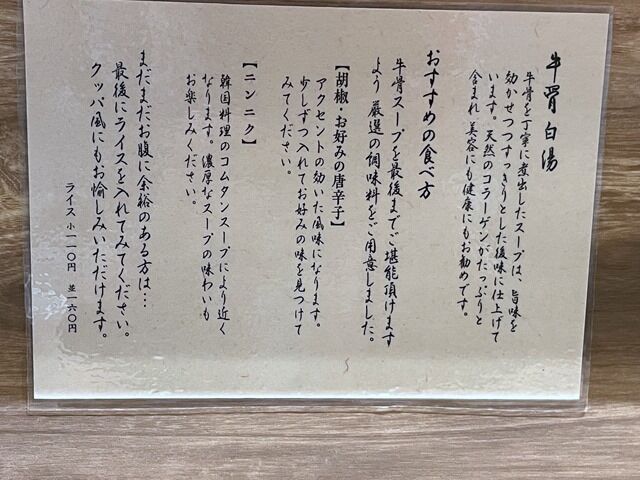 牛骨白湯
牛骨を丁寧に煮出したスープは、旨味を
効かせつつすっきりとした後味に仕上げて
います。天然のコラーゲンがたっぷりと
含まれ 美容にも健康にもお勧めです。
おすすめの食べ方
牛骨スープを最後までご堪能頂けます
よう 厳選の調味料をご用意しました。
【胡椒・お好みの唐辛子】
アクセントの効いた風味になります。
少しずつ入れてお好みの味を見つけて
みてください。
【ニンニク】
韓国料理のコムタンスープにより近く
なります。濃厚なスープの味わいも
お楽しみください。
まだまだお腹に余裕のある方は…
最後にライスを入れてみてください。
クッパ風にもお愉しみいただけます。
ライス 小一一〇円 並一六〇円